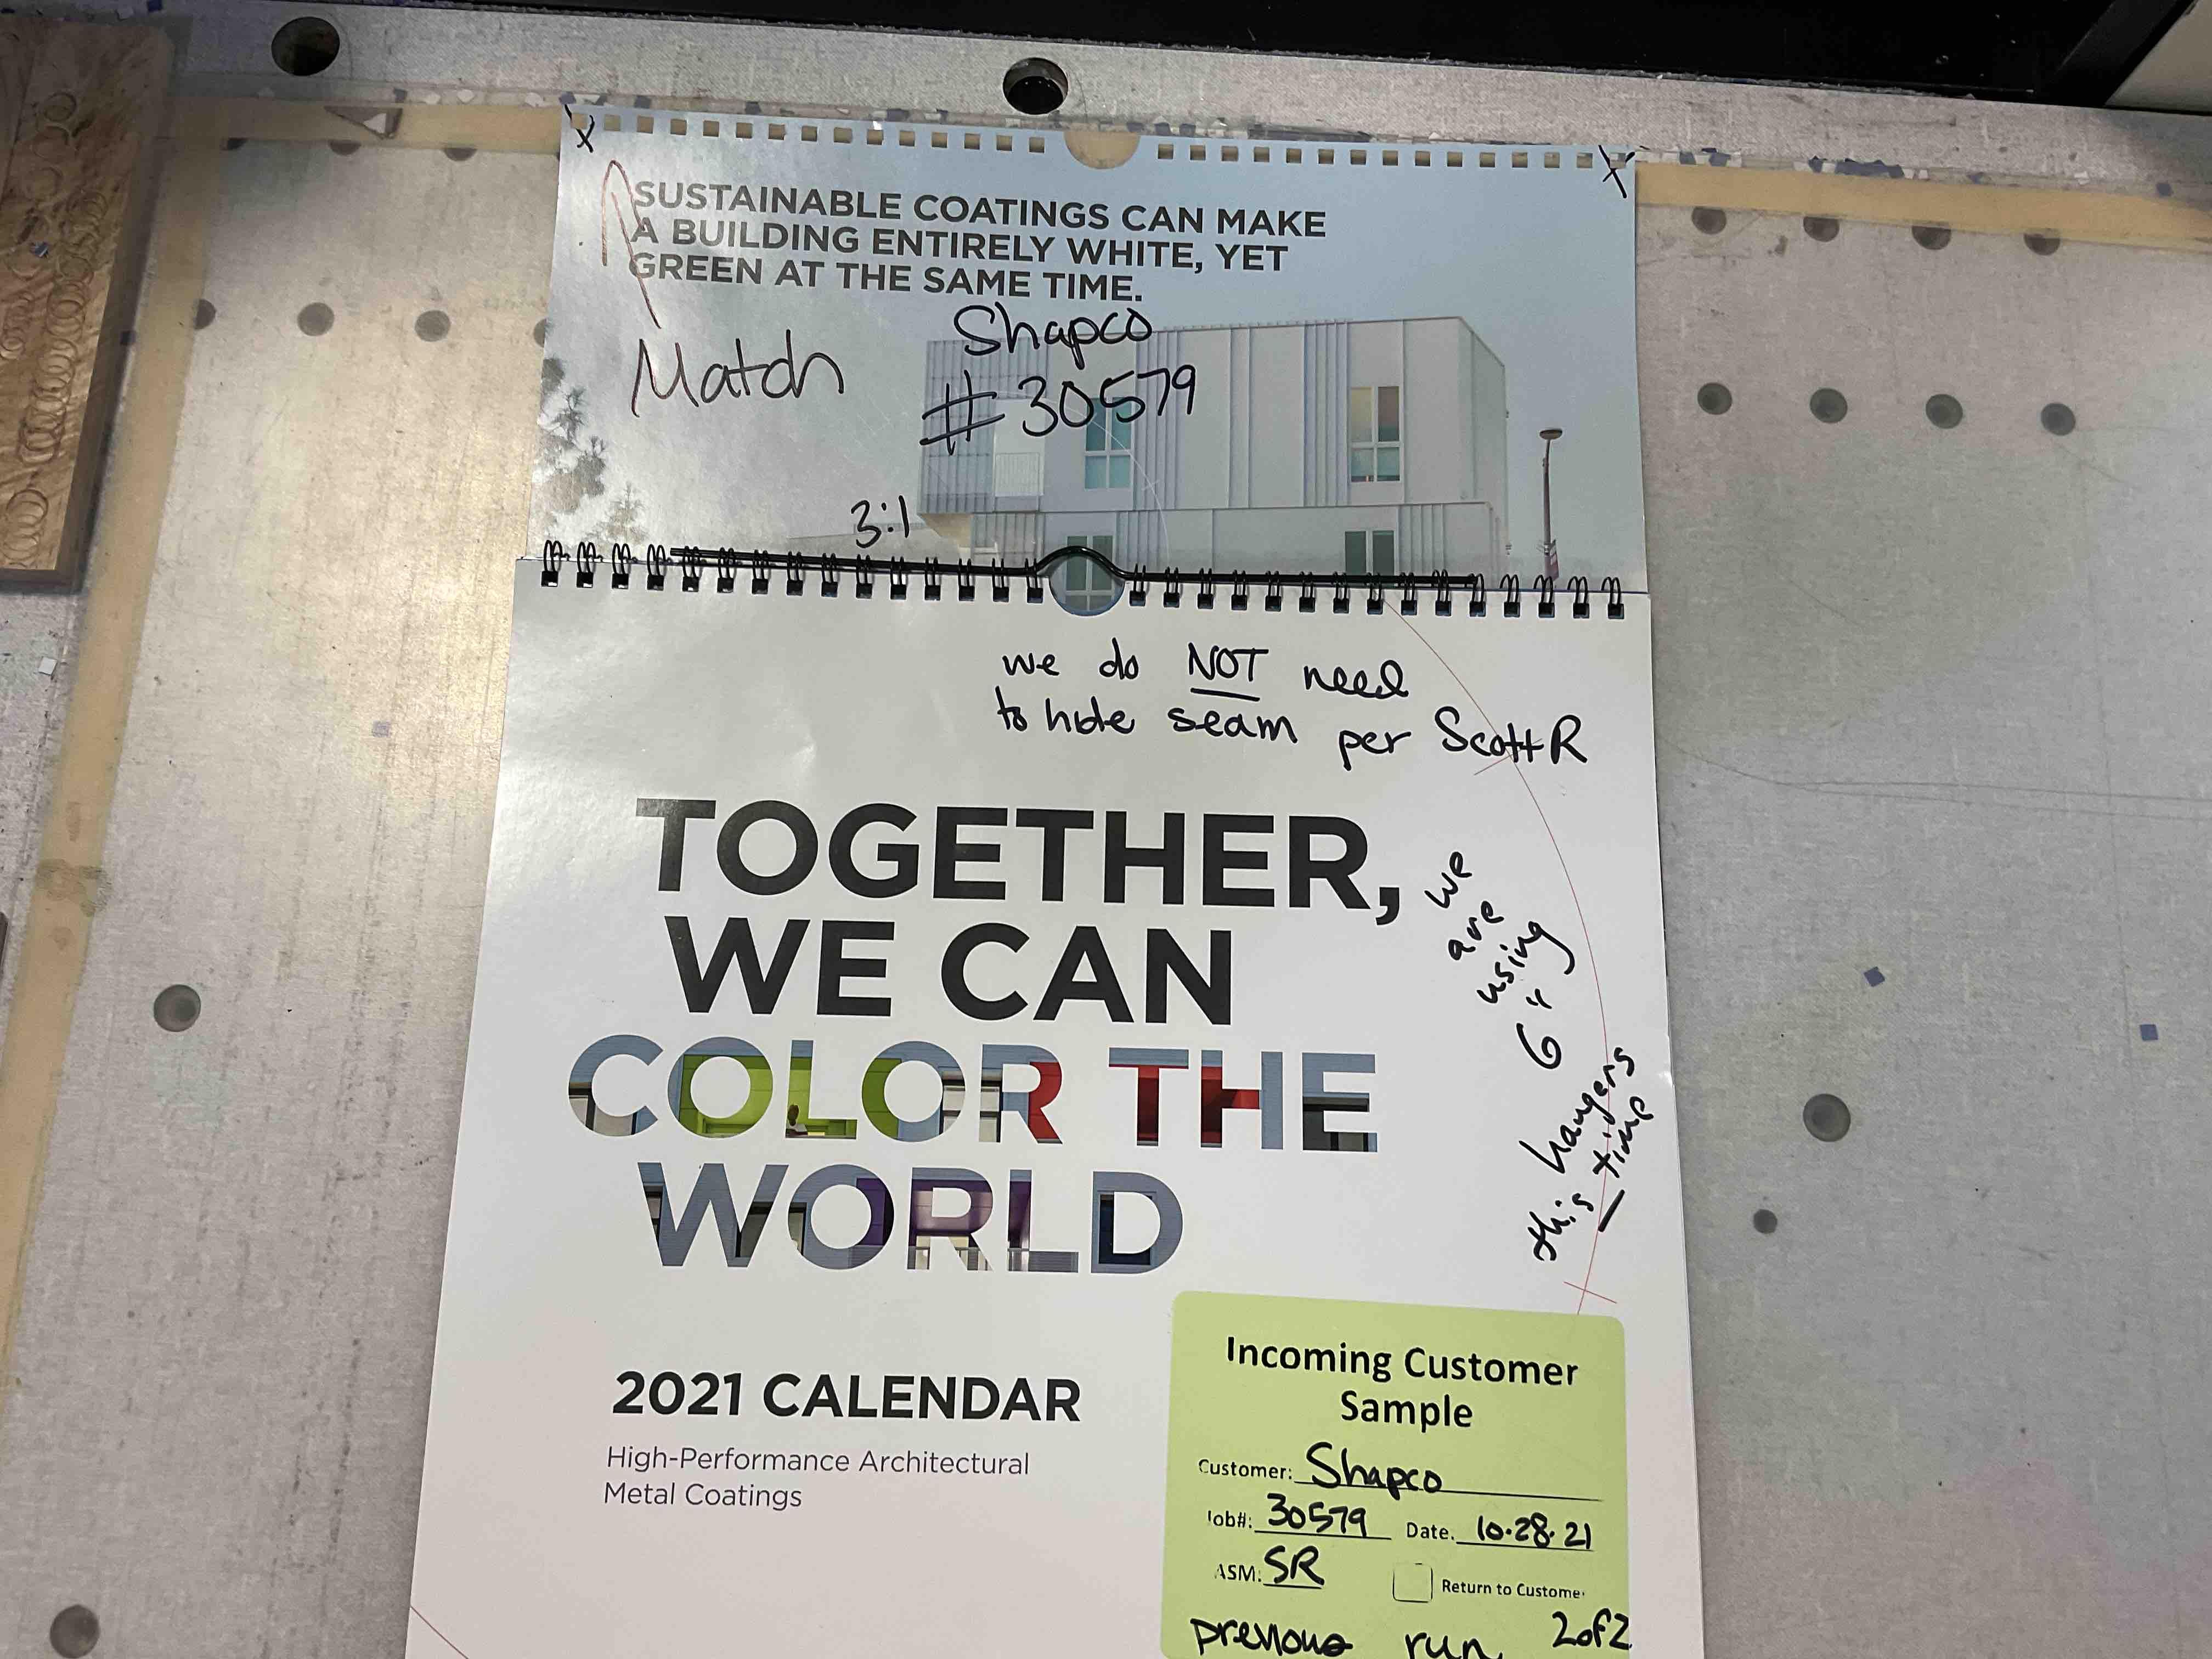 x
x
SUSTAINABLE COATINGS CAN MAKE
A BUILDING ENTIRELY WHITE, YET
GREEN AT THE SAME TIME.
Match
Shapco
#30579
3:1
we do NOT need
to hide seam per Scott R
TOGETHER,
WE CAN
COLOR THE
WORLD
we
are
using
6"
hangers
this time
2021 CALENDAR
High-Performance Architectural
Metal Coatings
Incoming Customer
Sample
Customer: Shapco
Job#: 30579 Date. 10.28.21
ASM: SR Return to Custome
previous run 2of2